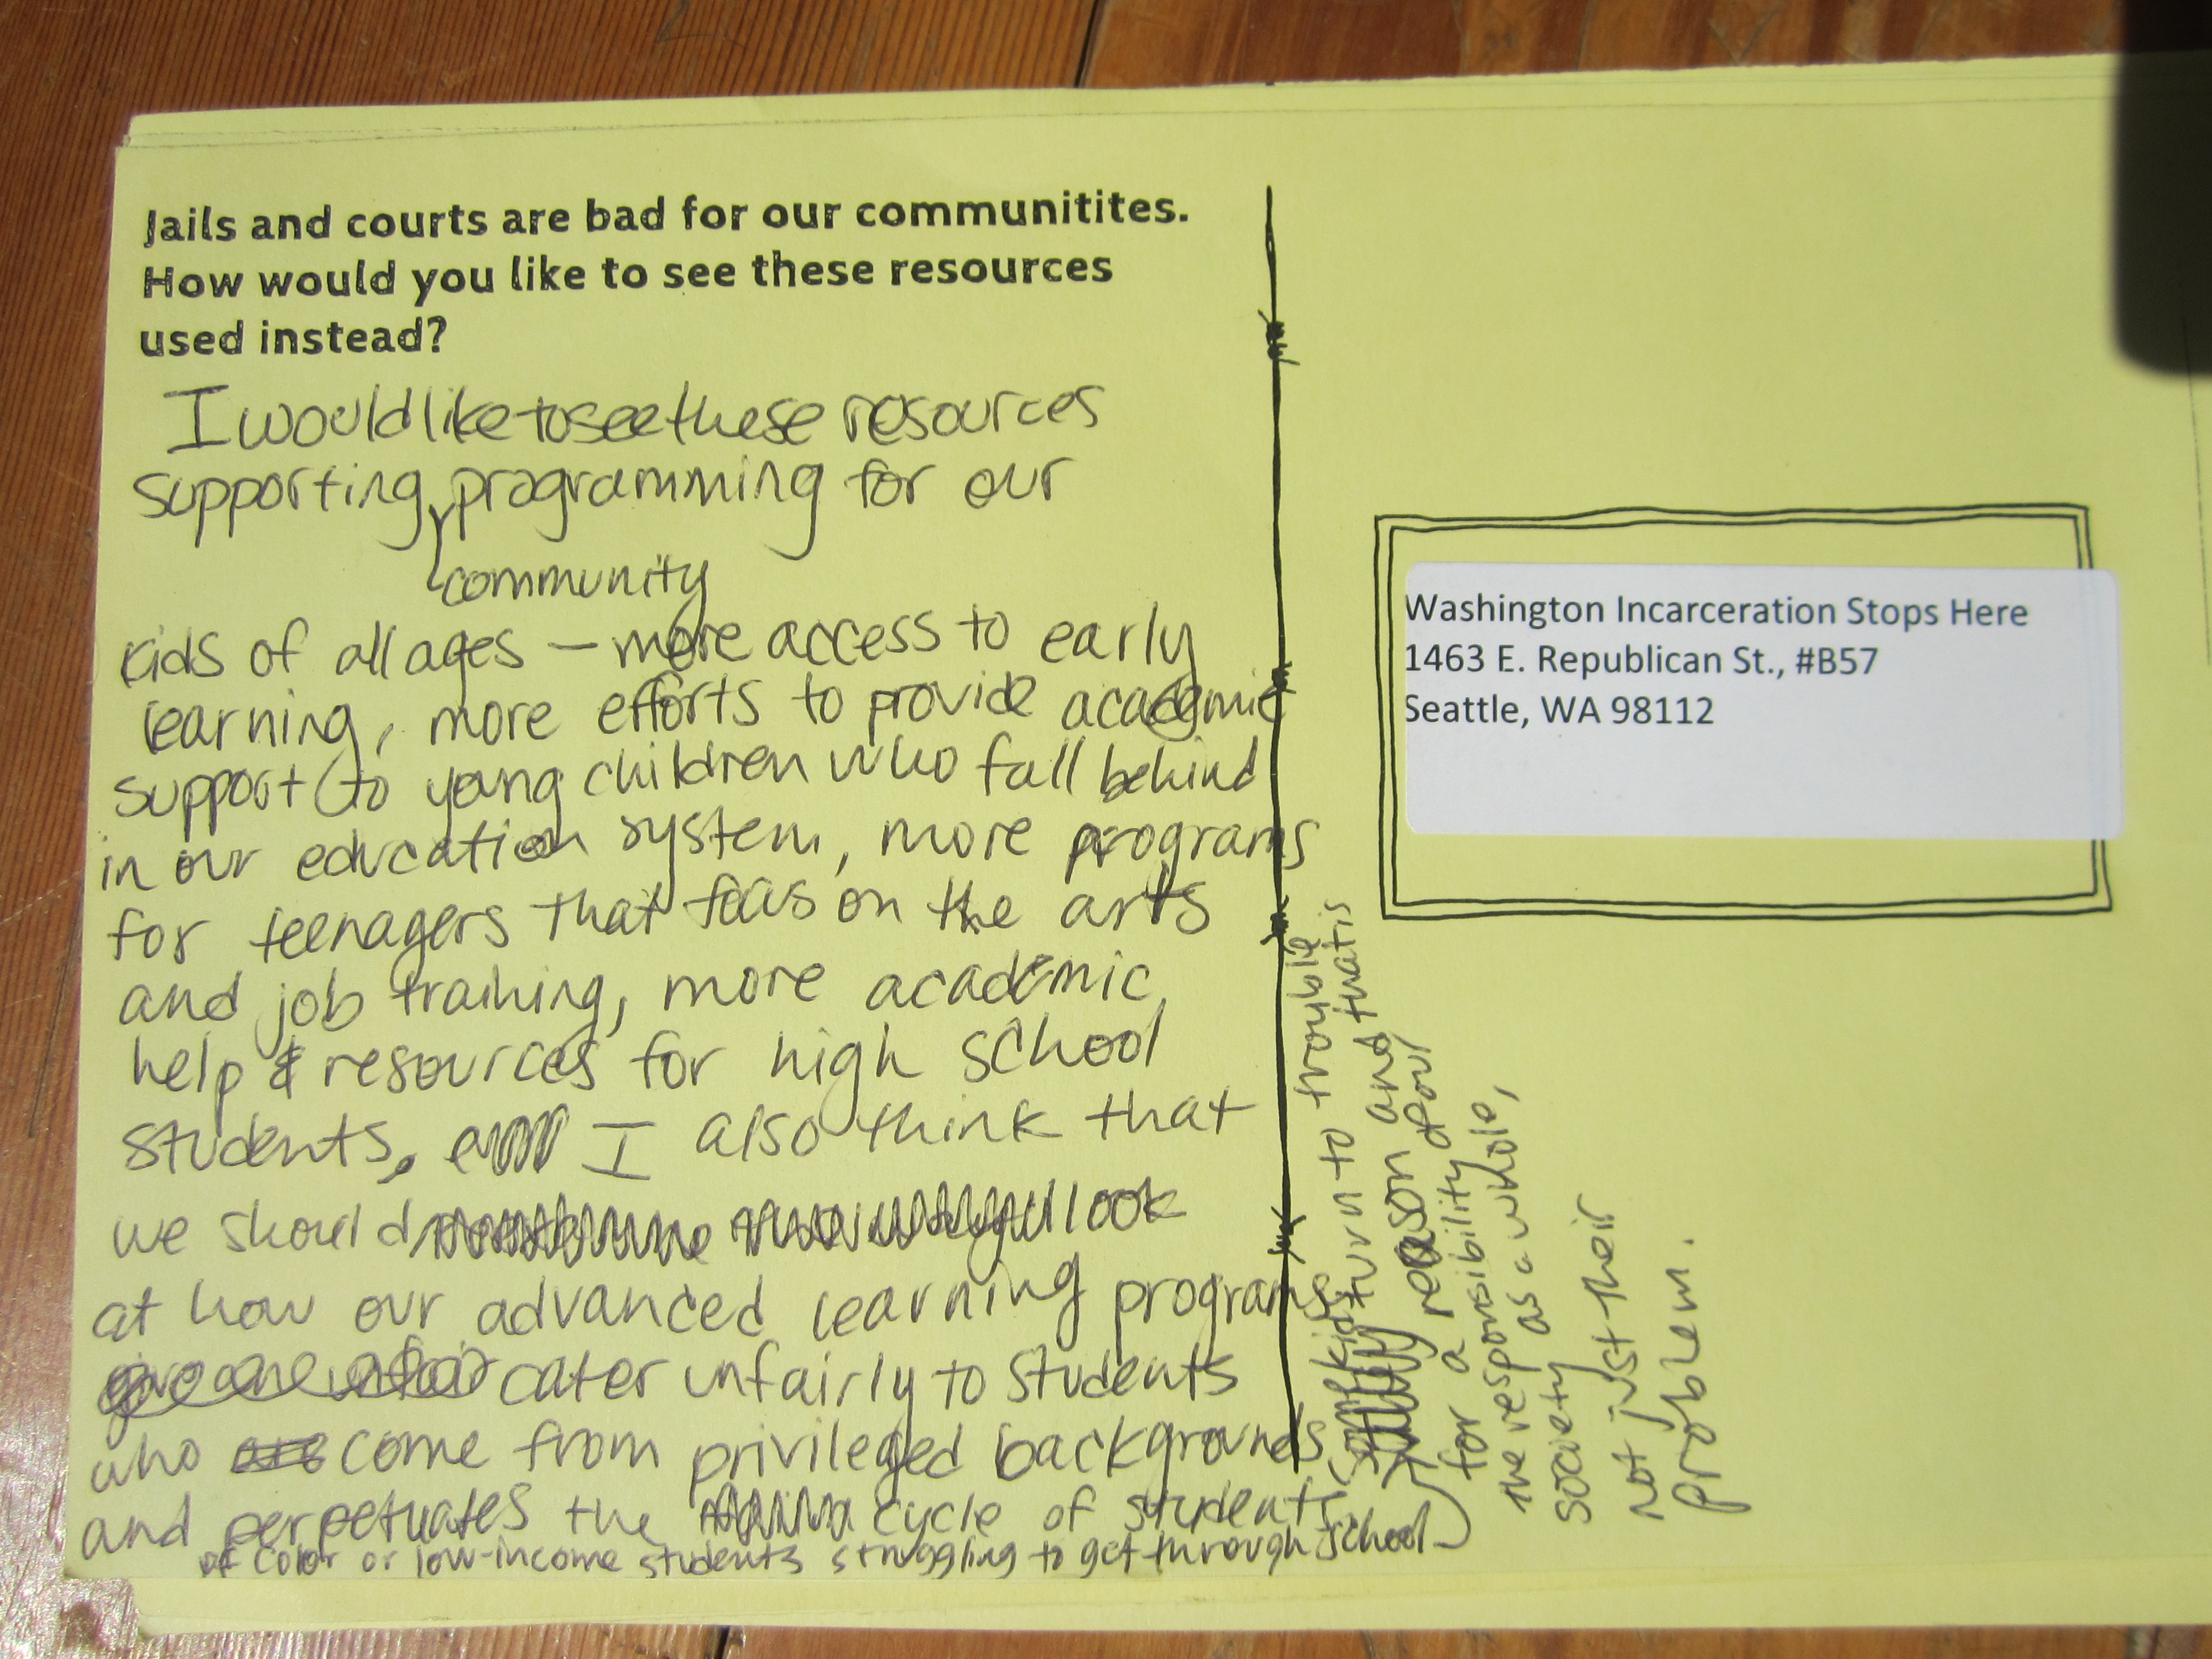 Jails and courts are bad for our communitites.
How would you like to see these resources
used instead?
I would like to see these resources
supporting programming for our
community
kids of all ages — more access to early
learning, more efforts to provide academic
support to young children who fall behind
in our education system, more programs
for teenagers that focus on the arts
and job training, more academic
help & resources for high school
students. I also think that
we should look
at how our advanced learning programs
cater unfairly to students
who come from privileged backgrounds
and perpetuates the cycle of students
of color or low-income students struggling to get through school
kids turn to trouble
for a reason and that is
the responsibility of our
society as a whole,
not just their
problem.
Washington Incarceration Stops Here
1463 E. Republican St., #B57
Seattle, WA 98112